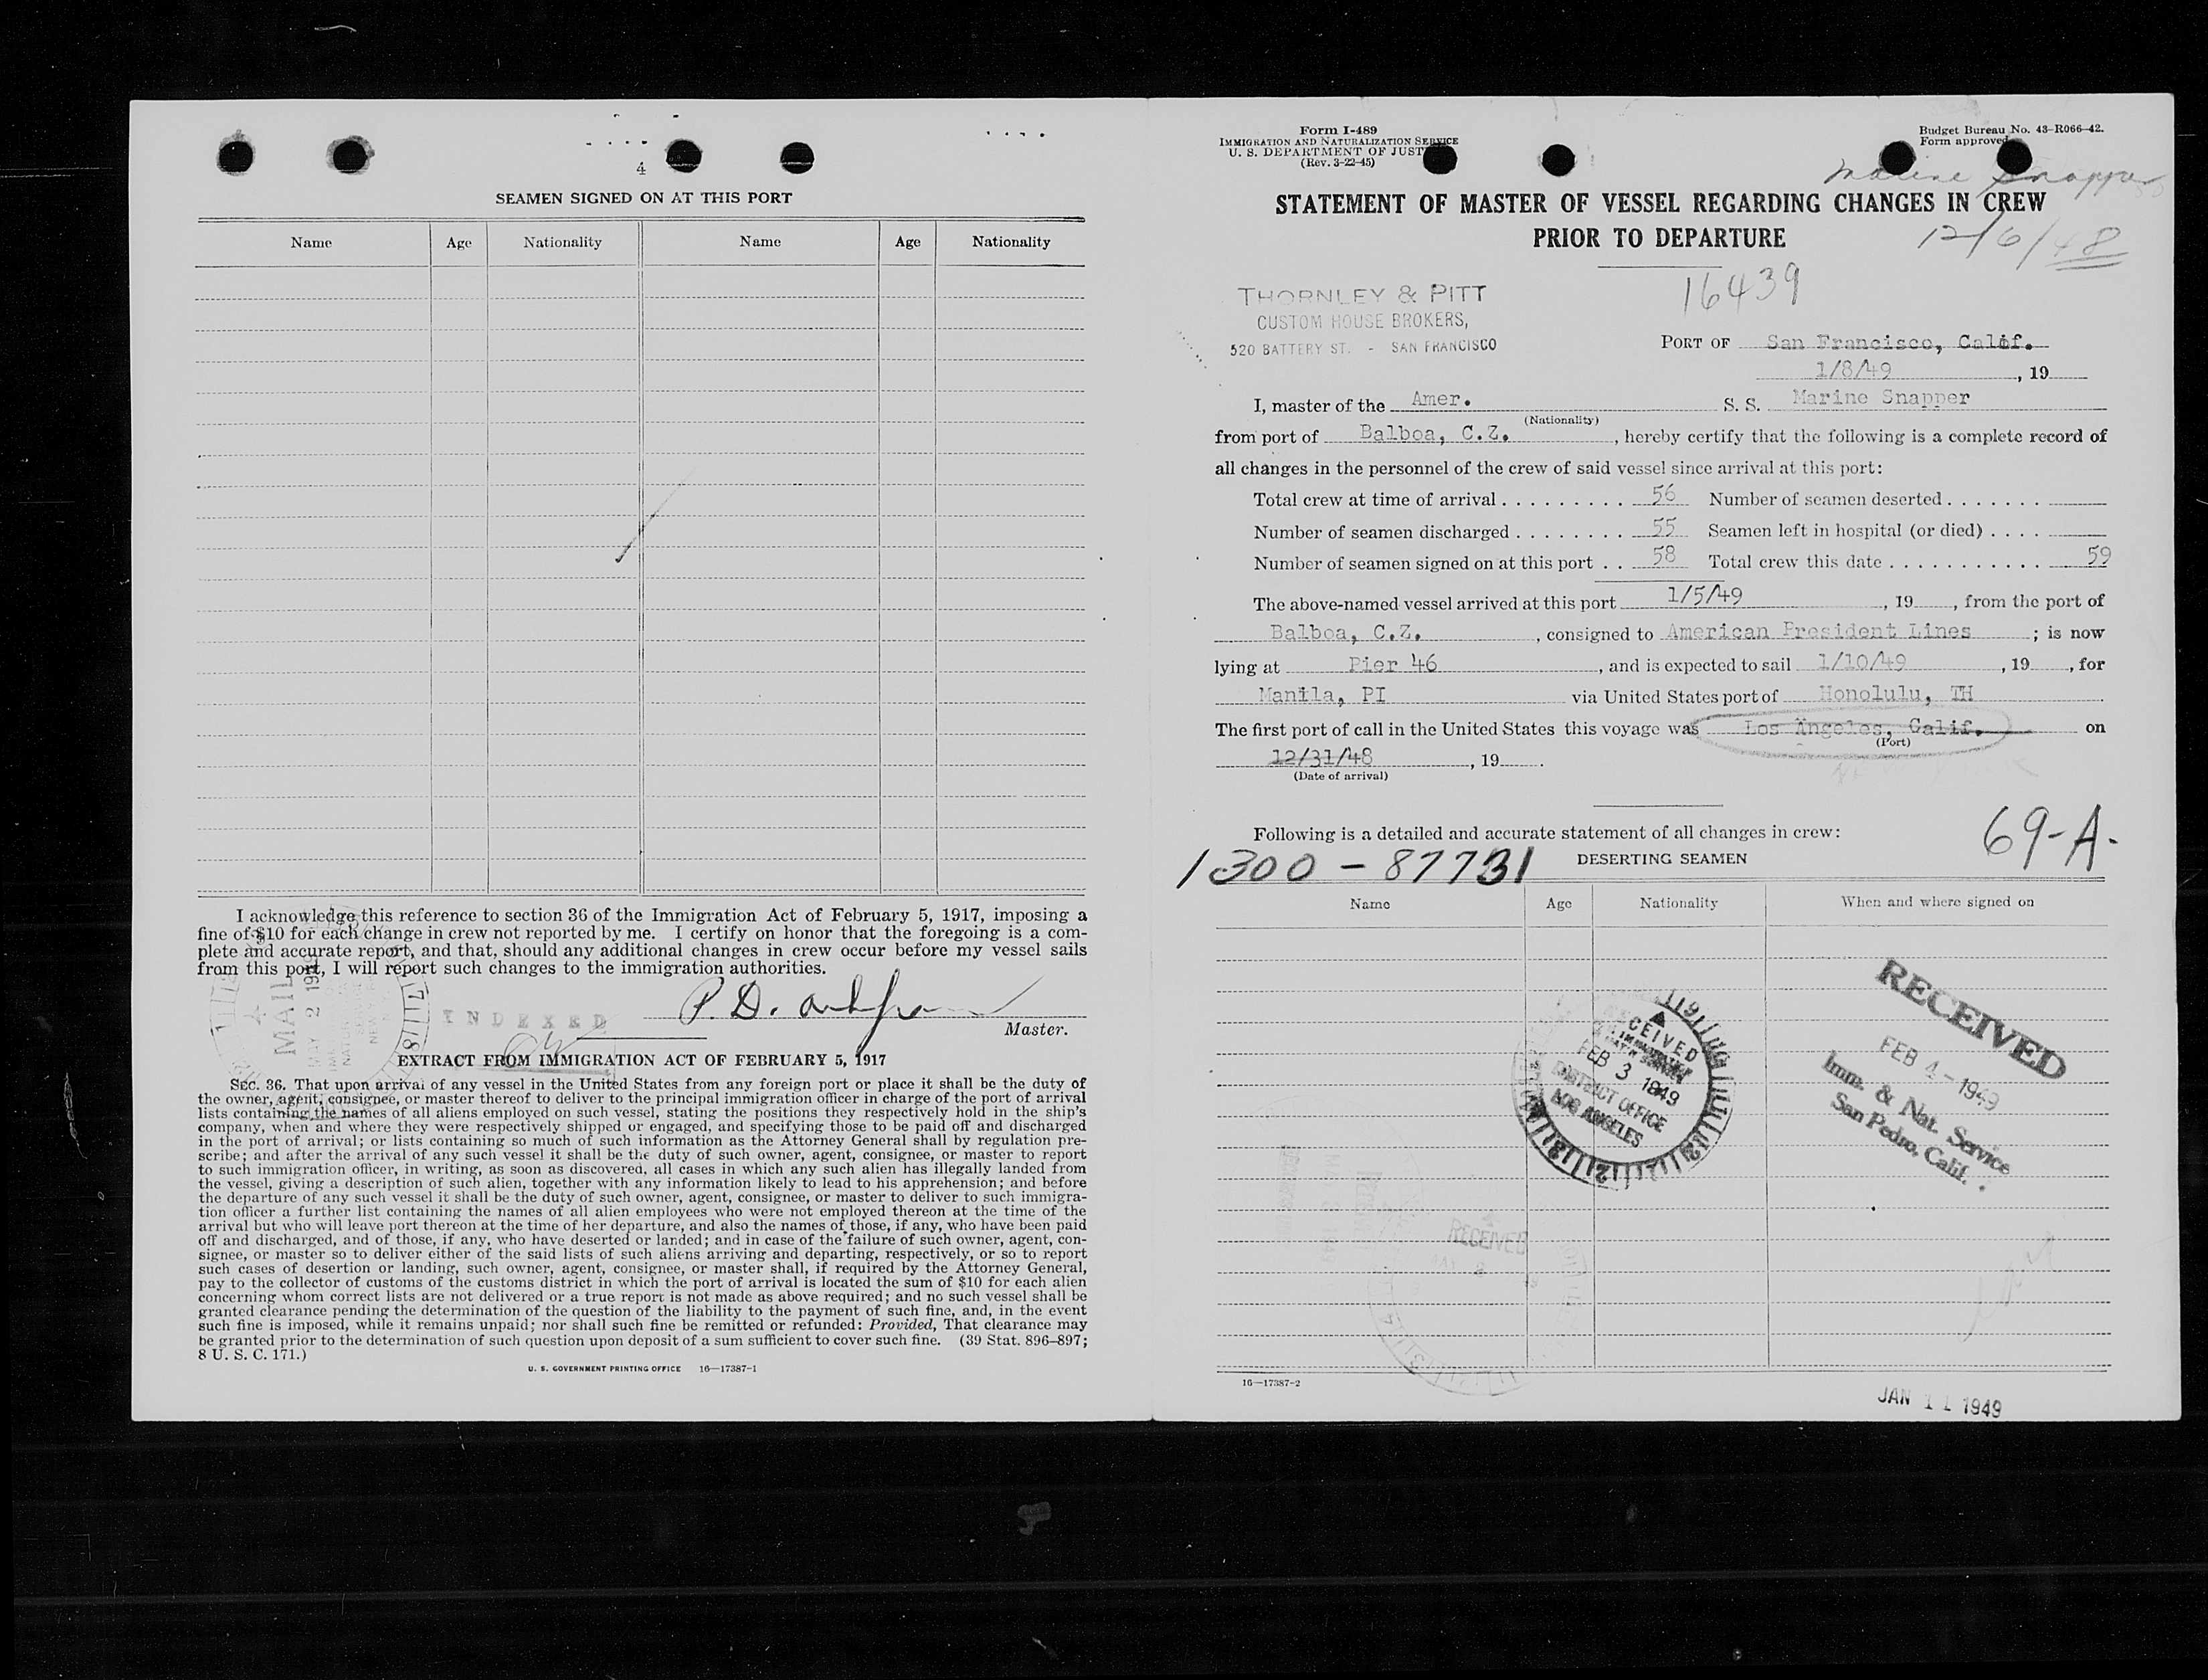 4
SEAMEN SIGNED ON AT THIS PORT
Name Age Nationality Name Age Nationality
I acknowledge this reference to section 36 of the Immigration Act of February 5, 1917, imposing a
fine of $10 for each change in crew not reported by me. I certify on honor that the foregoing is a com-
plete and accurate report, and that, should any additional changes in crew occur before my vessel sails
from this port, I will report such changes to the immigration authorities.
MAIL
MAY 2 19
INDEXED
P. D.
Master.
EXTRACT FROM IMMIGRATION ACT OF FEBRUARY 5, 1917
SEC. 36. That upon arrival of any vessel in the United States from any foreign port or place it shall be the duty of
the owner, agent, consignee, or master thereof to deliver to the principal immigration officer in charge of the port of arrival
lists containing the names of all aliens employed on such vessel, stating the positions they respectively hold in the ship's
company, when and where they were respectively shipped or engaged, and specifying those to be paid off and discharged
in the port of arrival; or lists containing so much of such information as the Attorney General shall by regulation pre-
scribe; and after the arrival of any such vessel it shall be the duty of such owner, agent, consignee, or master to report
to such immigration officer, in writing, as soon as discovered, all cases in which any such alien has illegally landed from
the vessel, giving a description of such alien, together with any information likely to lead to his apprehension; and before
the departure of any such vessel it shall be the duty of such owner, agent, consignee, or master to deliver to such immigra-
tion officer a further list containing the names of all alien employees who were not employed thereon at the time of the
arrival but who will leave port thereon at the time of her departure, and also the names of those, if any, who have been paid
off and discharged, and of those, if any, who have deserted or landed; and in case of the failure of such owner, agent, con-
signee, or master so to deliver either of the said lists of such aliens arriving and departing, respectively, or so to report
such cases of desertion or landing, such owner, agent, consignee, or master shall, if required by the Attorney General,
pay to the collector of customs of the customs district in which the port of arrival is located the sum of $10 for each alien
concerning whom correct lists are not delivered or a true report is not made as above required; and no such vessel shall be
granted clearance pending the determination of the question of the liability to the payment of such fine, and, in the event
such fine is imposed, while it remains unpaid; nor shall such fine be remitted or refunded: Provided, That clearance may
be granted prior to the determination of such question upon deposit of a sum sufficient to cover such fine. (39 Stat. 896–897;
8 U. S. C. 171.)
U. S. GOVERNMENT PRINTING OFFICE 16—17387-1
Form I-489
IMMIGRATION AND NATURALIZATION SERVICE
U. S. DEPARTMENT OF JUST
(Rev. 3-22-45)
Budget Bureau No. 43-R066-42.
Form approved
Marine Snapper
STATEMENT OF MASTER OF VESSEL REGARDING CHANGES IN CREW
PRIOR TO DEPARTURE
12/6/48
16439
THORNLEY & PITT
CUSTOM HOUSE BROKERS,
520 BATTERY ST. - SAN FRANCISCO
PORT OF San Francisco, Calif.
1/8/49, 19
I, master of the Amer. S. S. Marine Snapper
(Nationality)
from port of Balboa, C.Z., hereby certify that the following is a complete record of
all changes in the personnel of the crew of said vessel since arrival at this port:
Total crew at time of arrival . . . . . . . . . 56 Number of seamen deserted . . . . . . .
Number of seamen discharged . . . . . . . . 55 Seamen left in hospital (or died) . . . .
Number of seamen signed on at this port . . 58 Total crew this date . . . . . . . . . . . . 59
The above-named vessel arrived at this port 1/5/49, 19, from the port of
Balboa, C.Z., consigned to American President Lines; is now
lying at Pier 46, and is expected to sail 1/10/49, 19, for
Manila, PI via United States port of Honolulu, TH
The first port of call in the United States this voyage was Los Angeles, Calif. on
(Port)
12/31/48, 19.
(Date of arrival)
Following is a detailed and accurate statement of all changes in crew:
69-A-
1300-87731
DESERTING SEAMEN
Name Age Nationality When and where signed on
RECEIVED
FEB 3 1949
DISTRICT OFFICE
LOS ANGELES
RECEIVED
FEB 4 - 1949
Imm. & Nat. Service
San Pedro, Calif.
RECEIVED
16—17387-2
JAN 11 1949